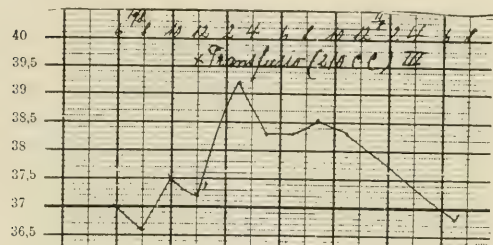 6 8 10 12 2 4 6 8 10 12 2 4 6 8
× Transfusio (210 CC) III
40
39,5
39
38,5
38
37,5
37
36,5